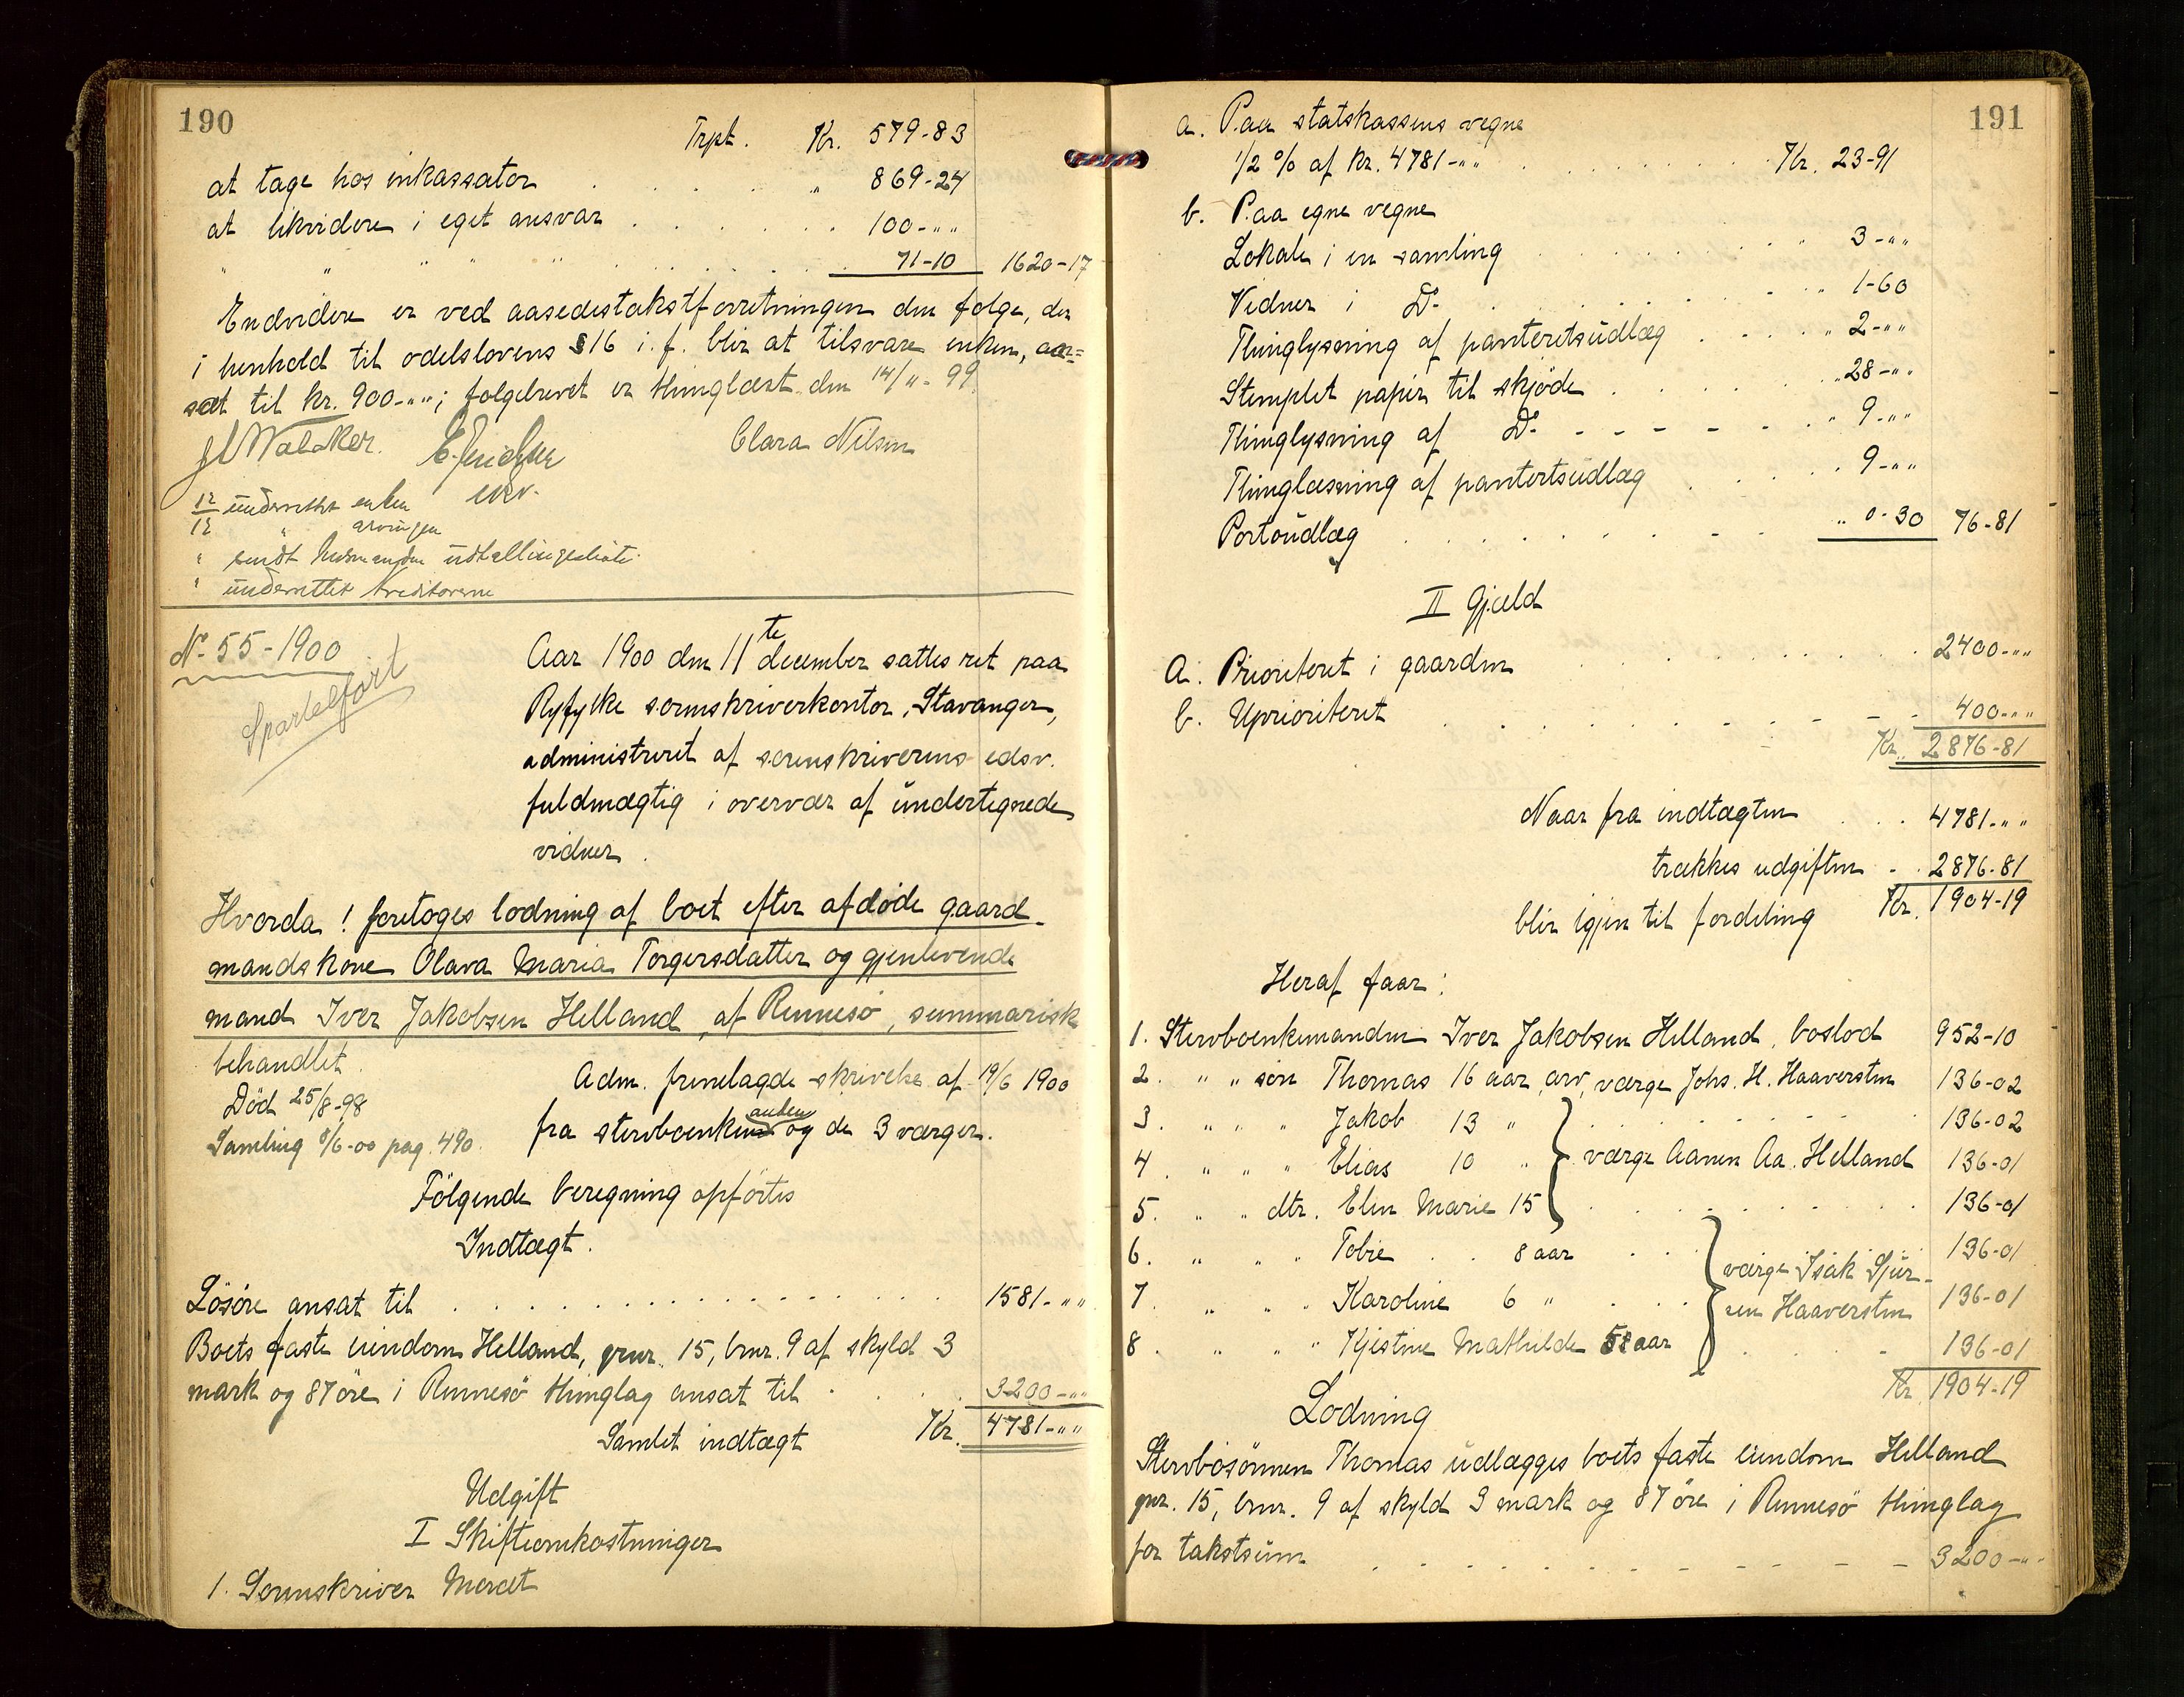 190
Trpt. Kr. 579-83
at tage hos inkassator . . . " 869-24
at likvidere i eget ansvar . . . 100-""
" " " " " . . . 71-10 1620-17
Endvidere er ved aasedestakstforretningen den følge, der
i henhold til odelslovens §16 i.f. blir at tilsvare enken, an=
sat til kr. 900-""; følgebrevet er thinglæst den 14/11-99
Clara Nilsen
12/12 underrettet enken
" arvingen
" sendt udtællingsliste
" underrettet kreditorerne
No 55-1900
Sportelført
Aar 1900 den 11te december sattes ret paa
Ryfylke sorenskriverkontor, Stavanger,
administreret af sorenskriverens edsv.
fuldmægtig i overvær af undertegnede
vidner.
Hvorda! foretoges lodning af boet efter afdøde gaard-
mandskone Olava Maria Torgersdatter og gjenlevende
mand Iver Jakobsen Helland, af Rennesø, summarisk
behandlet.
Død 25/8-98
Samling 8/6-00 pag. 490.
Adm. fremlagde skrivelse af 19/6 1900
fra stervboenkemanden og de 3 værger.
Følgende beregning opførtes
Indtægt.
Løsøre ansat til . . . 1581-""
Boets faste eiendom Helland, gnr. 15, bnr. 9 af skyld 3
mark og 87 øre i Rennesø thinglag ansat til . . . 3200-""
Samlet indtægt Kr. 4781-""
Udgift
I Skifteomkostninger
1. Sorenskriver Meræt
191
a. Paa statskassens vegne
1/2 % af kr. 4781-"" . . . Kr. 23-91
b. Paa egne vegne
Lokale i en samling . . . " 3-""
Vidner i Do. . . . " 1-60
Thinglysning af panteretsudlæg . . . " 2-""
Stemplet papir til skjøde . . . " 28-""
Thinglysning af Do. - - - - " 9-""
Thinglæsning af pantertsudlæg . . . 9-""
Portoudlæg . . . " 0-30 76-81
II Gjæld
a. Prioriteret i gaarden . . . 2400-""
b. Uprioriteret . . . 400-""
Kr. 2876-81
Naar fra indtægten . . . 4781-""
trækkes udgiften . . 2876-81
blir igjen til fordeling Kr. 1904-19
Heraf faar:
1. Stervboenkemanden Iver Jakobsen Helland, boslod 952-10
2. " " søn Thomas 16 aar, arv, værge Johs. H. Haaversten 136-02
3. " " " Jakob 13 " . . . 136-02
4. " " " Elias 10 " } værge Aanen Aa. Helland 136-01
5. " " dtr. Elen Marie 15 . . . 136-01
6. " " " Tobie . . 8 aar . . 136-01
værge Isak Sjur-
7. " " " Karoline 6 " . . 136-01
sen Haaversten
8. " " " Kjestine Mathilde 5 aar . . . 136-01
Kr. 1904-19
Lodning
Stervbosønnen Thomas udlægges boets faste eiendom Helland
gnr. 15, bnr. 9 af skyld 3 mark og 87 øre i Rennesø thinglag
for takstsum . . . 3200-""